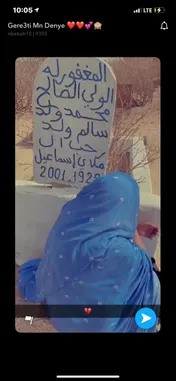 10:05
LTE
Gere3ti Mn Denye ❤️❤️💕🙈
المغفور له
الولي الصالح
محمد ولد
سالم ولد
مكاي إسماعيل
2001.1928